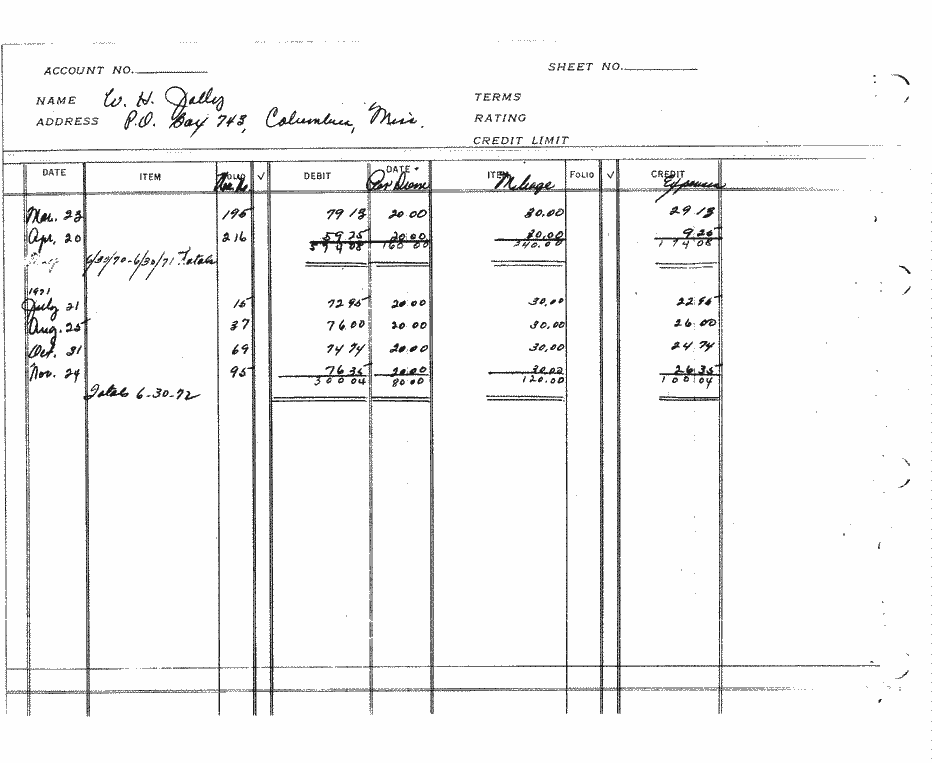 ACCOUNT NO.
SHEET NO.
NAME W. H. Jolly
TERMS
ADDRESS P.O. Box 743, Columbus, Miss.
RATING
CREDIT LIMIT
DATE ITEM FOLIO √ DEBIT DATE Per Diem ITEM Mileage FOLIO √ CREDIT Expenses
Mar. 23 195 79 13 20 00 30.00 29 13
Apr. 20 216 59 25 20 00 30.00 9 25
594 08 160 00 240.00 194 08
6/30/70-6/30/71 Totals
1971
July 21 15 72 95 20 00 30.00 22 95
Aug. 25 37 76 00 20 00 30.00 26 00
Oct. 31 69 74 74 20 00 30.00 24 74
Nov. 24 95 76 35 20 00 30.00 26 35
300 04 80 00 120.00 100 04
Totals 6-30-72